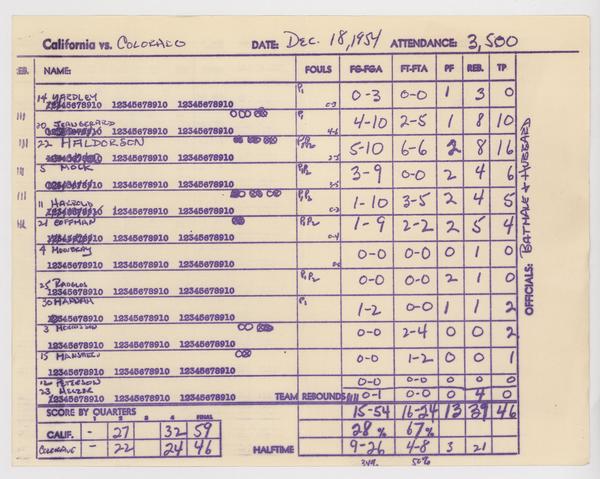 California vs. COLORADO DATE: DEC. 18, 1954 ATTENDANCE: 3,500
NAME: FOULS FG-FGA FT-FTA PF REB. TP
14 YARDLEY P1 0-3 0-0 1 3 0
12345678910 12345678910 12345678910 0-3
20 JEANGERARD P1 4-10 2-5 1 8 10
12345678910 12345678910 12345678910 4-6
22 HALDORSON 5-10 6-6 2 8 16
12345678910 12345678910 12345678910
5 MOCK P1P2 3-9 0-0 2 4 6
12345678910 12345678910 12345678910
11 HAROLD P1P2 1-10 3-5 2 4 5
12345678910 12345678910 12345678910
21 COFFMAN P1P2 1-9 2-2 2 5 4
12345678910 12345678910 12345678910 0-4
4 0-0 0-0 0 1 0
12345678910 12345678910 12345678910
25 P1P2 0-0 0-0 2 1 0
12345678910 12345678910 12345678910
30 HANNAH P1 1-2 0-0 1 1 2
12345678910 12345678910 12345678910
3 0-0 2-4 0 0 2
12345678910 12345678910 12345678910
15 MANSFIELD 0-0 1-2 0 0 1
12345678910 12345678910 12345678910
PETERSON 0-0 0-0 0 0 0
23 MELZER
12345678910 12345678910 12345678910 TEAM REBOUNDS 0-1 0-0 0 4 0
15-54 16-24 13 39 46
SCORE BY QUARTERS 1 2 3 4 FINAL
28% 67%
CALIF. - 27 32 59
COLORADO - 22 24 46 HALFTIME 9-26 4-8 3 21
34% 50%
OFFICIALS: BATMALE & HUBBARD